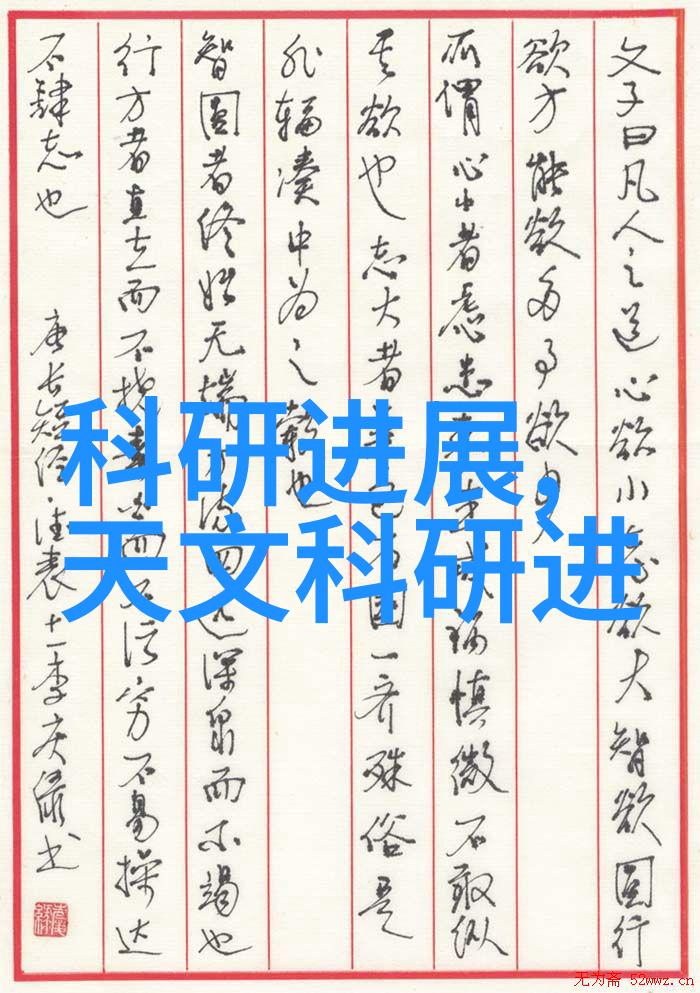 文子曰凡人之道心欲小志欲大智欲圆行
欲方能欲多事欲
所谓心小者虑患未生戒祸慎微不敢纵
其欲也志大者兼包万国一齐殊俗是
非辐凑中为之毂也
智圆者终始无端方流四远深泉而不竭也
行方者直立而不挠素白而不污穷不易操达
不肆志也
唐长短经
科研进展,
天文科研进
无为斋 52wwz.cn